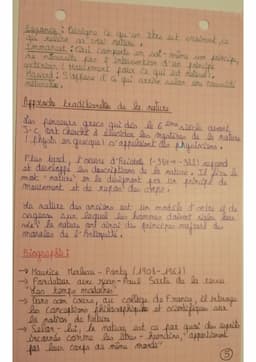 Essence : Désigne ce qu'un être est vraiment, ce
qui relève de la nature.
Immanent : Qui comporte en soi-même un principe,
ne nécessite pas l'intervention d'un principe
extérieur
Hasard : S'oppose à ce qui arrive selon une
Approche traditionnelle de la nature
Les penseurs grecs qui dès le 6ème siècle avant
J-C, ont cherché à élucider les mystères de la nature
(physis en grecque) s'appellaient des physiciens.
Plus tard, l'œuvre d'Aristote (-384 → -322) reprend
et développe les descriptions de la nature. Il fixe le
mot "nature" en le désignant par un principe de
mouvement et de repos des corps.
La nature des anciens est un modèle d'ordre et de
sagesse sur lequel les hommes doivent régler leur
vie. La nature est ainsi du principe
morales de l'Antiquité.
Biographie :
→ Maurice Merleau-Ponty (1908-1961)
→ Fondateur avec Jean-Paul Sartre de la revue
"Les temps modernes"
→ Dans son cours, au collège de France, il interroge
les conceptions philosophiques et scientifiques sur
la notion de nature.
→ Selon lui, la nature est ce par quoi des esprits
incarnés comme les êtres-humains, appartiennent
par leur corps au même monde"
5